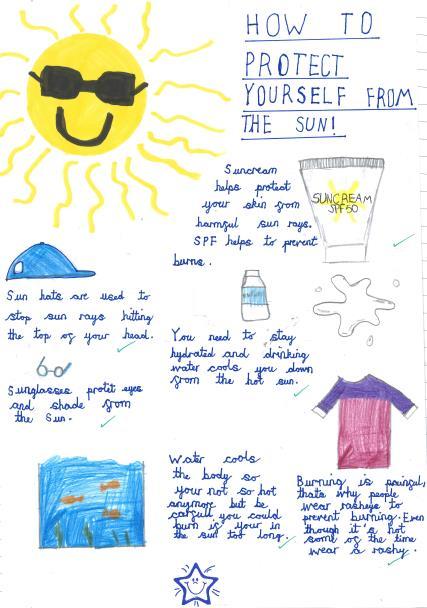 HOW TO
PROTECT
YOURSELF FROM
THE SUN!
Suncream
helps protect
your skin from
harmful sun rays.
SPF helps to prevent
burns.
SUNCREAM
SPF50
Sun hats are used to
stop sun rays hitting
the top of your head.
You need to stay
hydrated and drinking
water cools you down
from the hot sun.
Sunglasses protet eyes
and shade from
the sun.
Water cools
the body so
your not so hot
anymore but be
carfull you could
burn if your in
the sun too long.
Burning is painful,
thats why people
wear rasheys to
prevent burning. Even
though it's hot
some of the time
wear a rashy.